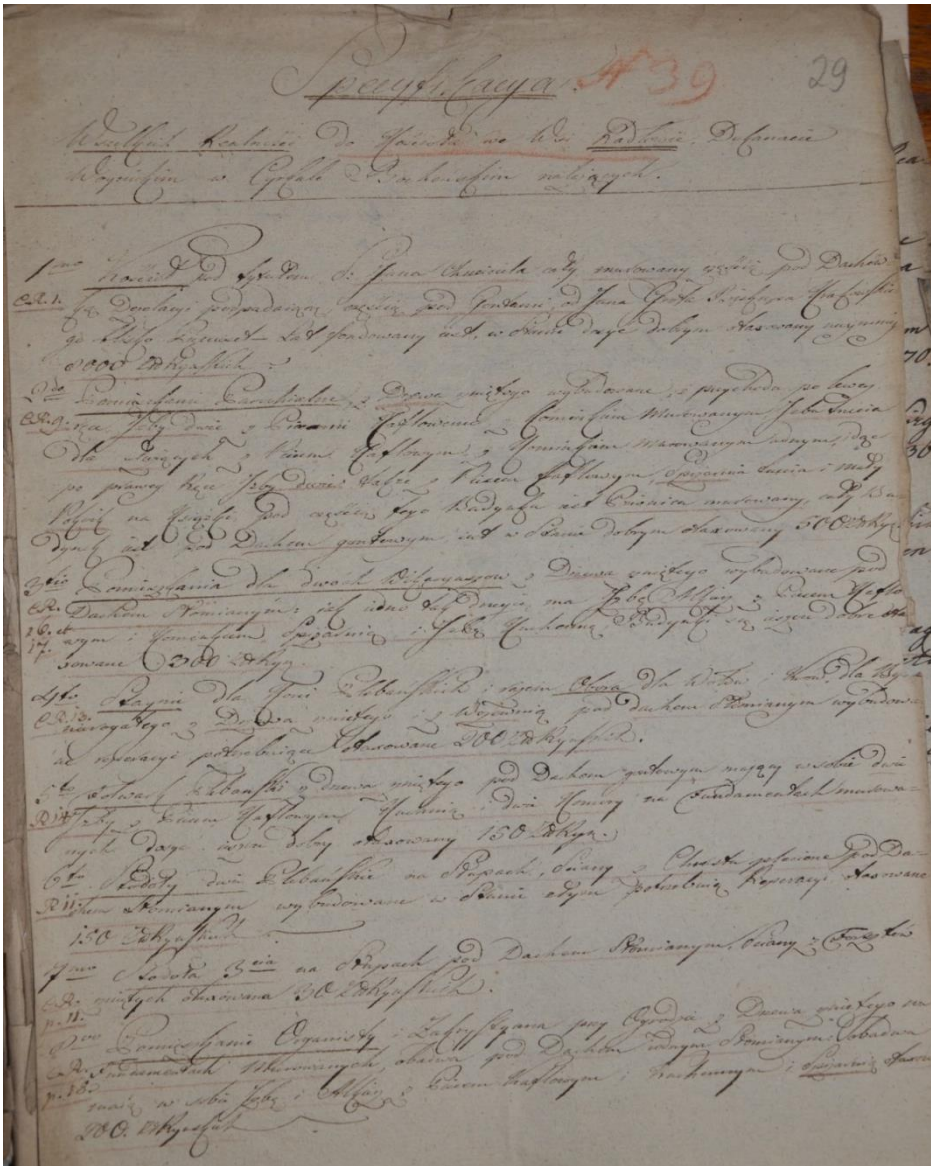 Specyfikacya N 39 29
Wszelkich Realności do Kościoła we Wsi Radłowie Dekanacie
Woynickim w Cyrkule Bocheńskim należących.
1mo Kościół pod tytułem S: Jana Chrzciciela cały murowany częścią pod Dachów
C.R. 1. ką częścią pod Gontami, od Jana Grota Biskupa Krakowski
go lat fundowany jest, w stanie dosyć dobrym otaxowany naymniey
8000 ZłRyńskich
2do Pomieszkanie Parochialne z Drzewa rzniętego wybudowane, z przychodu po lewey
ręce Izby dwie z Piecami Kaflowemi z Kominkiem Murowanym, Izba trzecia
dla z Piecem Kaflowym, z Kominkiem murowanym, idąc
po prawey ręce Izby dwie także z Piecem kaflowym, spiżarnia trzecia i mały
Pokoik na Książki, pod częścią tego Budynku jest Piwnica murowana, cały Bu
dynek jest pod Dachem gontowym, jest w stanie dobrym otaxowany 500 ZłRyń
3tio Pomieszkania dla dwóch Wikaryuszow z Drzewa rzniętego wybudowane pod
C.R. Dachem Słomianym: jak jedno tak drugie ma Izbę, z Piecem Kaflo
16. et wym i Kominkiem, Spiżarnią i Izbę Kuchenną
17. sowane 200 ZłRyń.
4to Staynie dla Koni Plebańskich i razem Obora dla Wołów i Krów, dla
C.R. 13. rogatego z Drzewa rzniętego i z Wozownią pod dachem Słomianym wybudowa
ne reperacyi potrzebujące otaxowane 200 ZłRyńskich.
5to Folwark Plebański z drzewa rzniętego pod Dachem gontowym mający w sobie dwie
R 14 Izby z Piecem Kaflowym Kuchnią i dwie Komory na Fundamentach murowa-
nych dosyć dobry otaxowany 150 ZłRyń.
6to Stodoły dwie Plebańskie na Słupach, Ściany z Chrustu plecione pod Da-
R 11. chem Słomianym wybudowane w Stanie potrzebują Reperacyi otaxowane
150 ZłRyńskich
7mo Stodoła 3cia na Słupach pod Dachem Słomianym, Ściany z
C.R. rzniętych otaxowana 30 ZłRyńskich.
p. 11.
8vo Pomieszkanie Organisty i Zakrystyana przy Ogrodzie z Drzewa rzniętego na
C.R. Fundamentach Murowanych, obadwa pod Dachem jednym Słomianym, obadwa
p. 18. mają w sobie Izbę i z Piecem Kaflowym i Kuchennym i Spiżarnią otaxow
200. ZłRyńskich